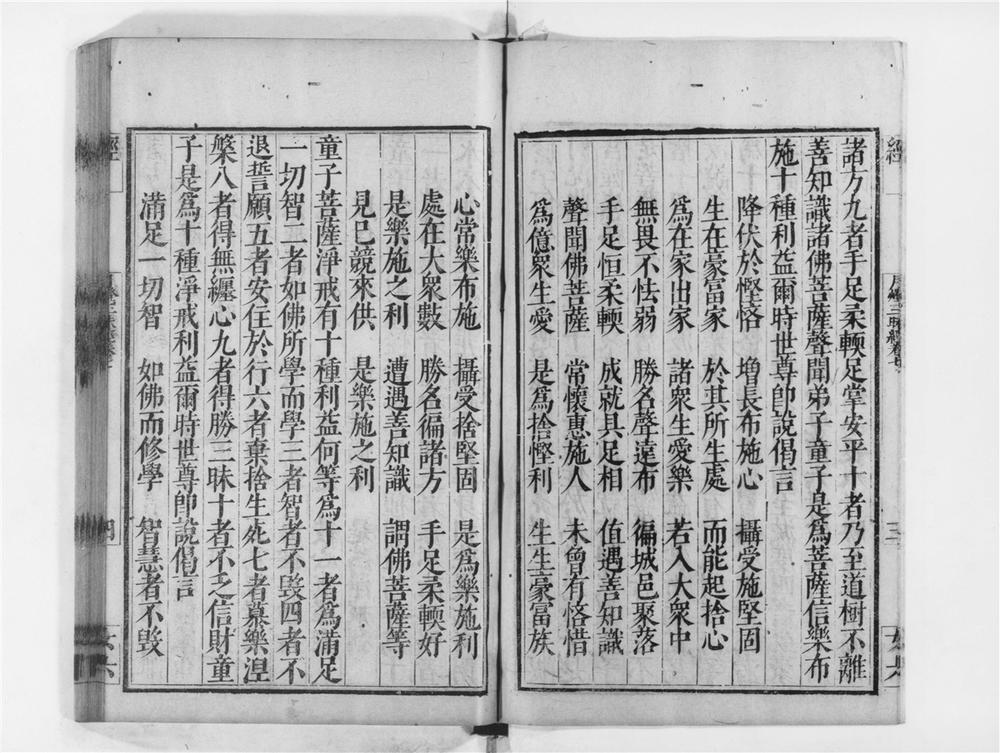 諸方九者手足柔輭足掌安平十者乃至道樹不離
善知識諸佛菩薩聲聞弟子童子是爲菩薩信樂布
施十種利益爾時世尊卽說偈言
降伏於慳悋　增長布施心　攝受施堅固
生在豪富家　於其所生處　而能起捨心
爲在家出家　諸衆生愛樂　若入大衆中
無畏不怯弱　勝名聲遠布　徧城邑聚落
手足恒柔輭　成就具足相　值遇善知識
聲聞佛菩薩　常懷惠施人　未曾有悋惜
爲億衆生愛　是爲捨慳利　生生豪富族
心常樂布施　攝受捨堅固　是爲樂施利
處在大衆數　勝名徧諸方　手足柔輭好
是樂施之利　遭遇善知識　謂佛菩薩等
見已競來供　是樂施之利
童子菩薩淨戒有十種利益何等爲十一者爲滿足
一切智二者如佛所學而學三者智者不毀四者不
退誓願五者安住於行六者棄捨生死七者慕樂涅
槃八者得無纏心九者得勝三昧十者不乏信財童
子是爲十種淨戒利益爾時世尊卽說偈言
滿足一切智　如佛而修學　智慧者不毀
經
四